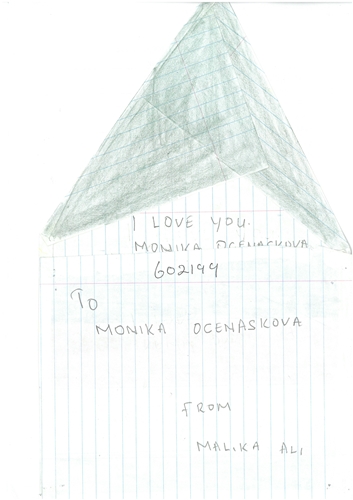 I LOVE YOU.
MONIKA OCENASKOVA
602199
TO
MONIKA OCENASKOVA
FROM
MALIKA ALI